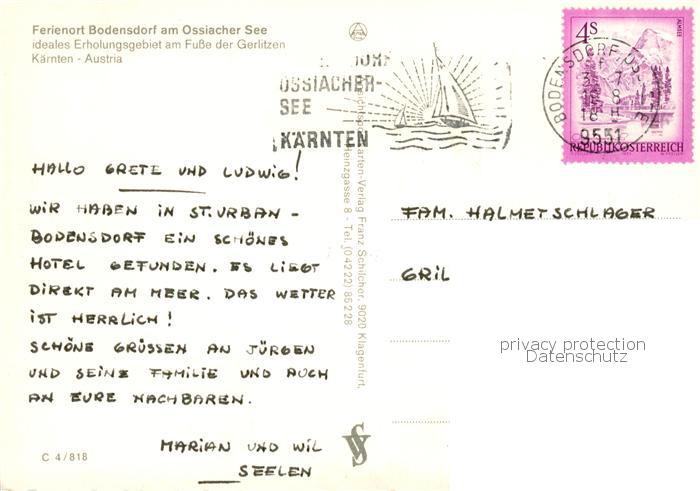 Ferienort Bodensdorf am Ossiacher See
ideales Erholungsgebiet am Fuße der Gerlitzen
Kärnten - Austria
OSSIACHER-
SEE
KÄRNTEN
BODENSDORF
9551
4S
ALMSEE
REPUBLIK ÖSTERREICH
HALLO GRETE UND LUDWIG!
WIR HABEN IN ST.URBAN -
BODENSDORF EIN SCHÖNES
HOTEL GEFUNDEN. ES LIEGT
DIREKT AM MEER. DAS WETTER
IST HERRLICH!
SCHÖNE GRÜSSEN AN JÜRGEN
UND SEINE FAMILIE UND AUCH
AN EURE NACHBAREN.
MARIAN UND WIL
SEELEN
C 4/818
Franz Schilcher, 9020 Klagenfurt,
Heinzgasse 8 - Tel. (04222) 85228
FAM. HALMETSCHLAGER
GRIL
privacy protection
Datenschutz